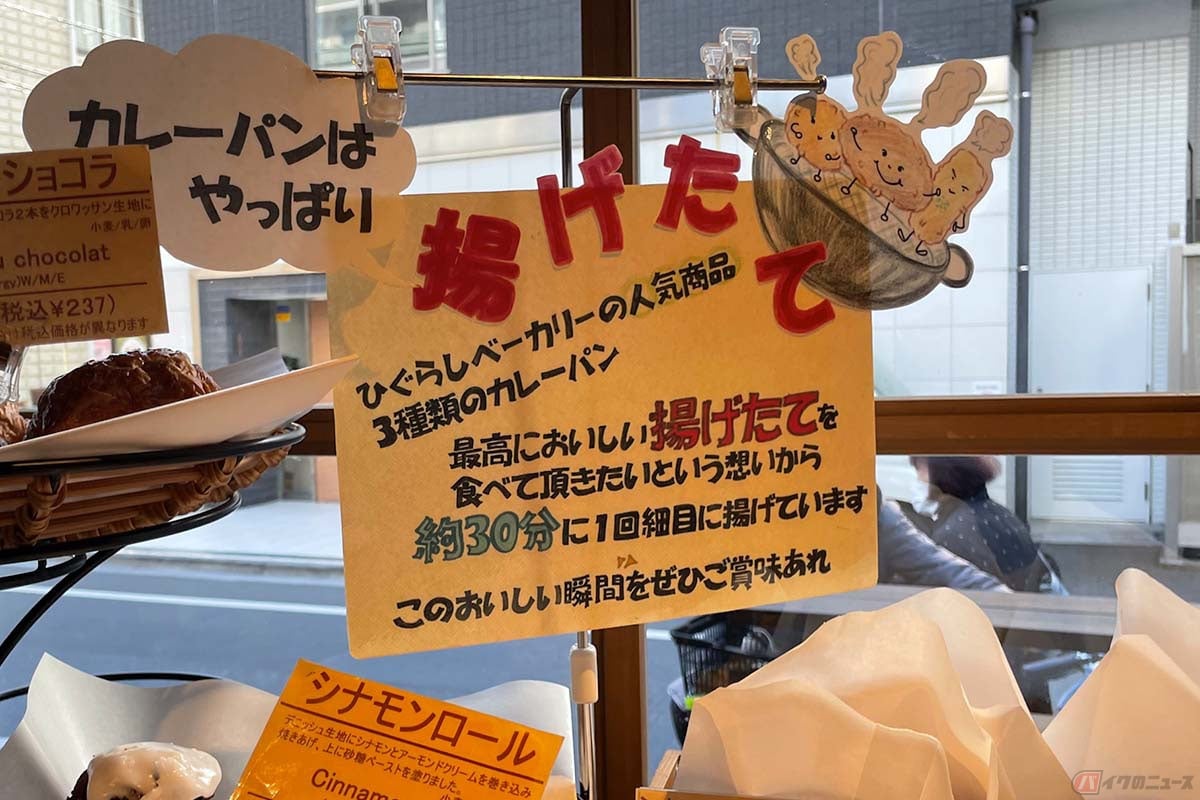 カレーパンは
やっぱり
揚げたて
ひぐらしベーカリーの人気商品
3種類のカレーパン
最高においしい揚げたてを
食べて頂きたいという想いから
約30分に1回細目に揚げています
このおいしい瞬間をぜひご賞味あれ
ショコラ
コラ2本をクロワッサン生地に
小麦/乳/卵
u chocolat
rgy)W/M/E
(税込¥237)
税込価格が異なります
シナモンロール
デニッシュ生地にシナモンとアーモンドクリームを巻き込み
焼きあげ、上に砂糖ペーストを塗りました。
Cinnamo
バイクのニュース